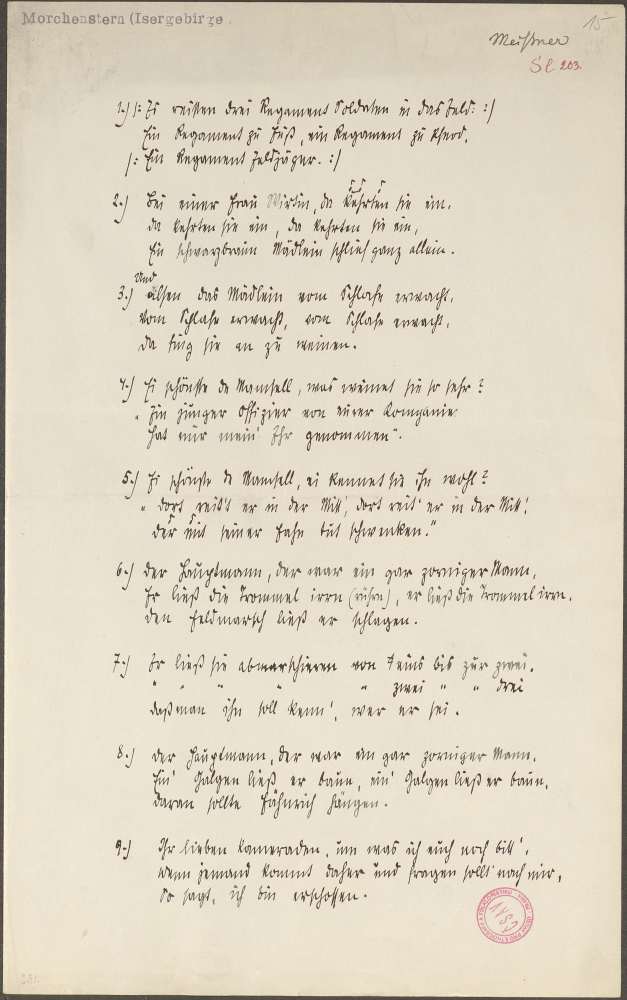 Morchenstern (Isergebirge.
15
Meißner
Sl 203.
1.) |: Es reisten drei Regament Soldaten in das Feld: :|
Ein Regament zu Fuß, ein Regament zu Pferd,
|: Ein Regament Feldjäger. :|
2.) Bei einer Frau Wirtin, da kehrten sie ein,
da kehrten sie ein, da kehrten sie ein,
Ein schwarzbraun Mädlein schlief ganz allein.
Und
3.) alsen das Mädlein vom Schlafe erwacht,
vom Schlafe erwacht, vom Schlafe erwacht,
da fing sie an zu weinen.
4.) Ei schönste de Mamsell, was weinet sie so sehr?
"Ein junger Offizier von eurer Kompanie
hat mir mein' Ehr genommen".
5.) Ei schönste de Mamsell, ei kennet sie ihn wohl?
"dort reit't er in der Mitt', dort reit' er in der Mitt',
der mit seiner Fahn tut schwenken."
6.) der Hauptmann, der war ein gar zorniger Mann,
Er ließ die Trommel irrn (rühren), er ließ die Trommel irrn,
den Feldmarsch ließ er schlagen.
7.) Er ließ sie abmarschieren von eins bis zur zwei,
" " " " " zwei " " drei
daß man ihn soll kenn', wer er sei.
8.) der Hauptmann, der war ein gar zorniger Mann,
Ein' Galgen ließ er baun, ein' Galgen ließ er baun,
daran sollte Fähnrich hängen.
9.) Ihr lieben Kameraden, um was ich euch noch bitt',
wenn jemand kommt daher und fragen sollt' nach mir,
So sagt, ich bin erschossen.